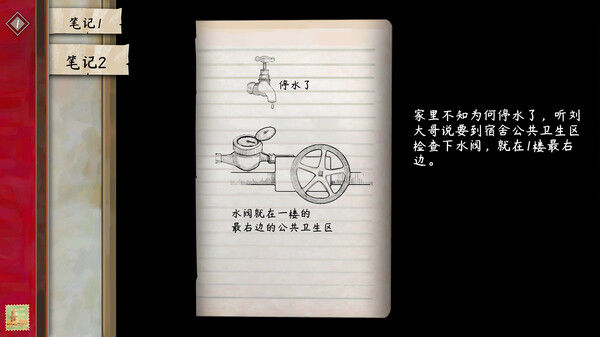 笔记1
笔记2
停水了
水阀就在一楼的
最右边的公共卫生区
家里不知为何停水了，听刘
大哥说要到宿舍公共卫生区
检查下水阀，就在1楼最右
边。